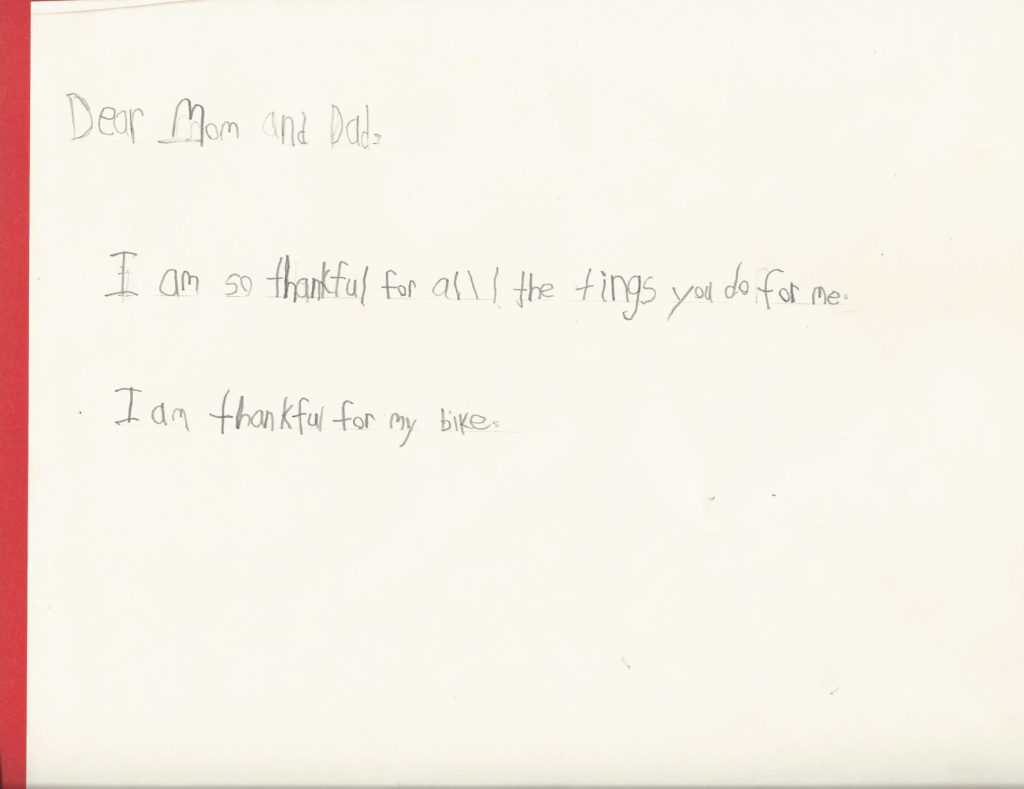 Dear Mom and Dad,
I am so thankful for alll the tings you do for me.
I am thankful for my bike.